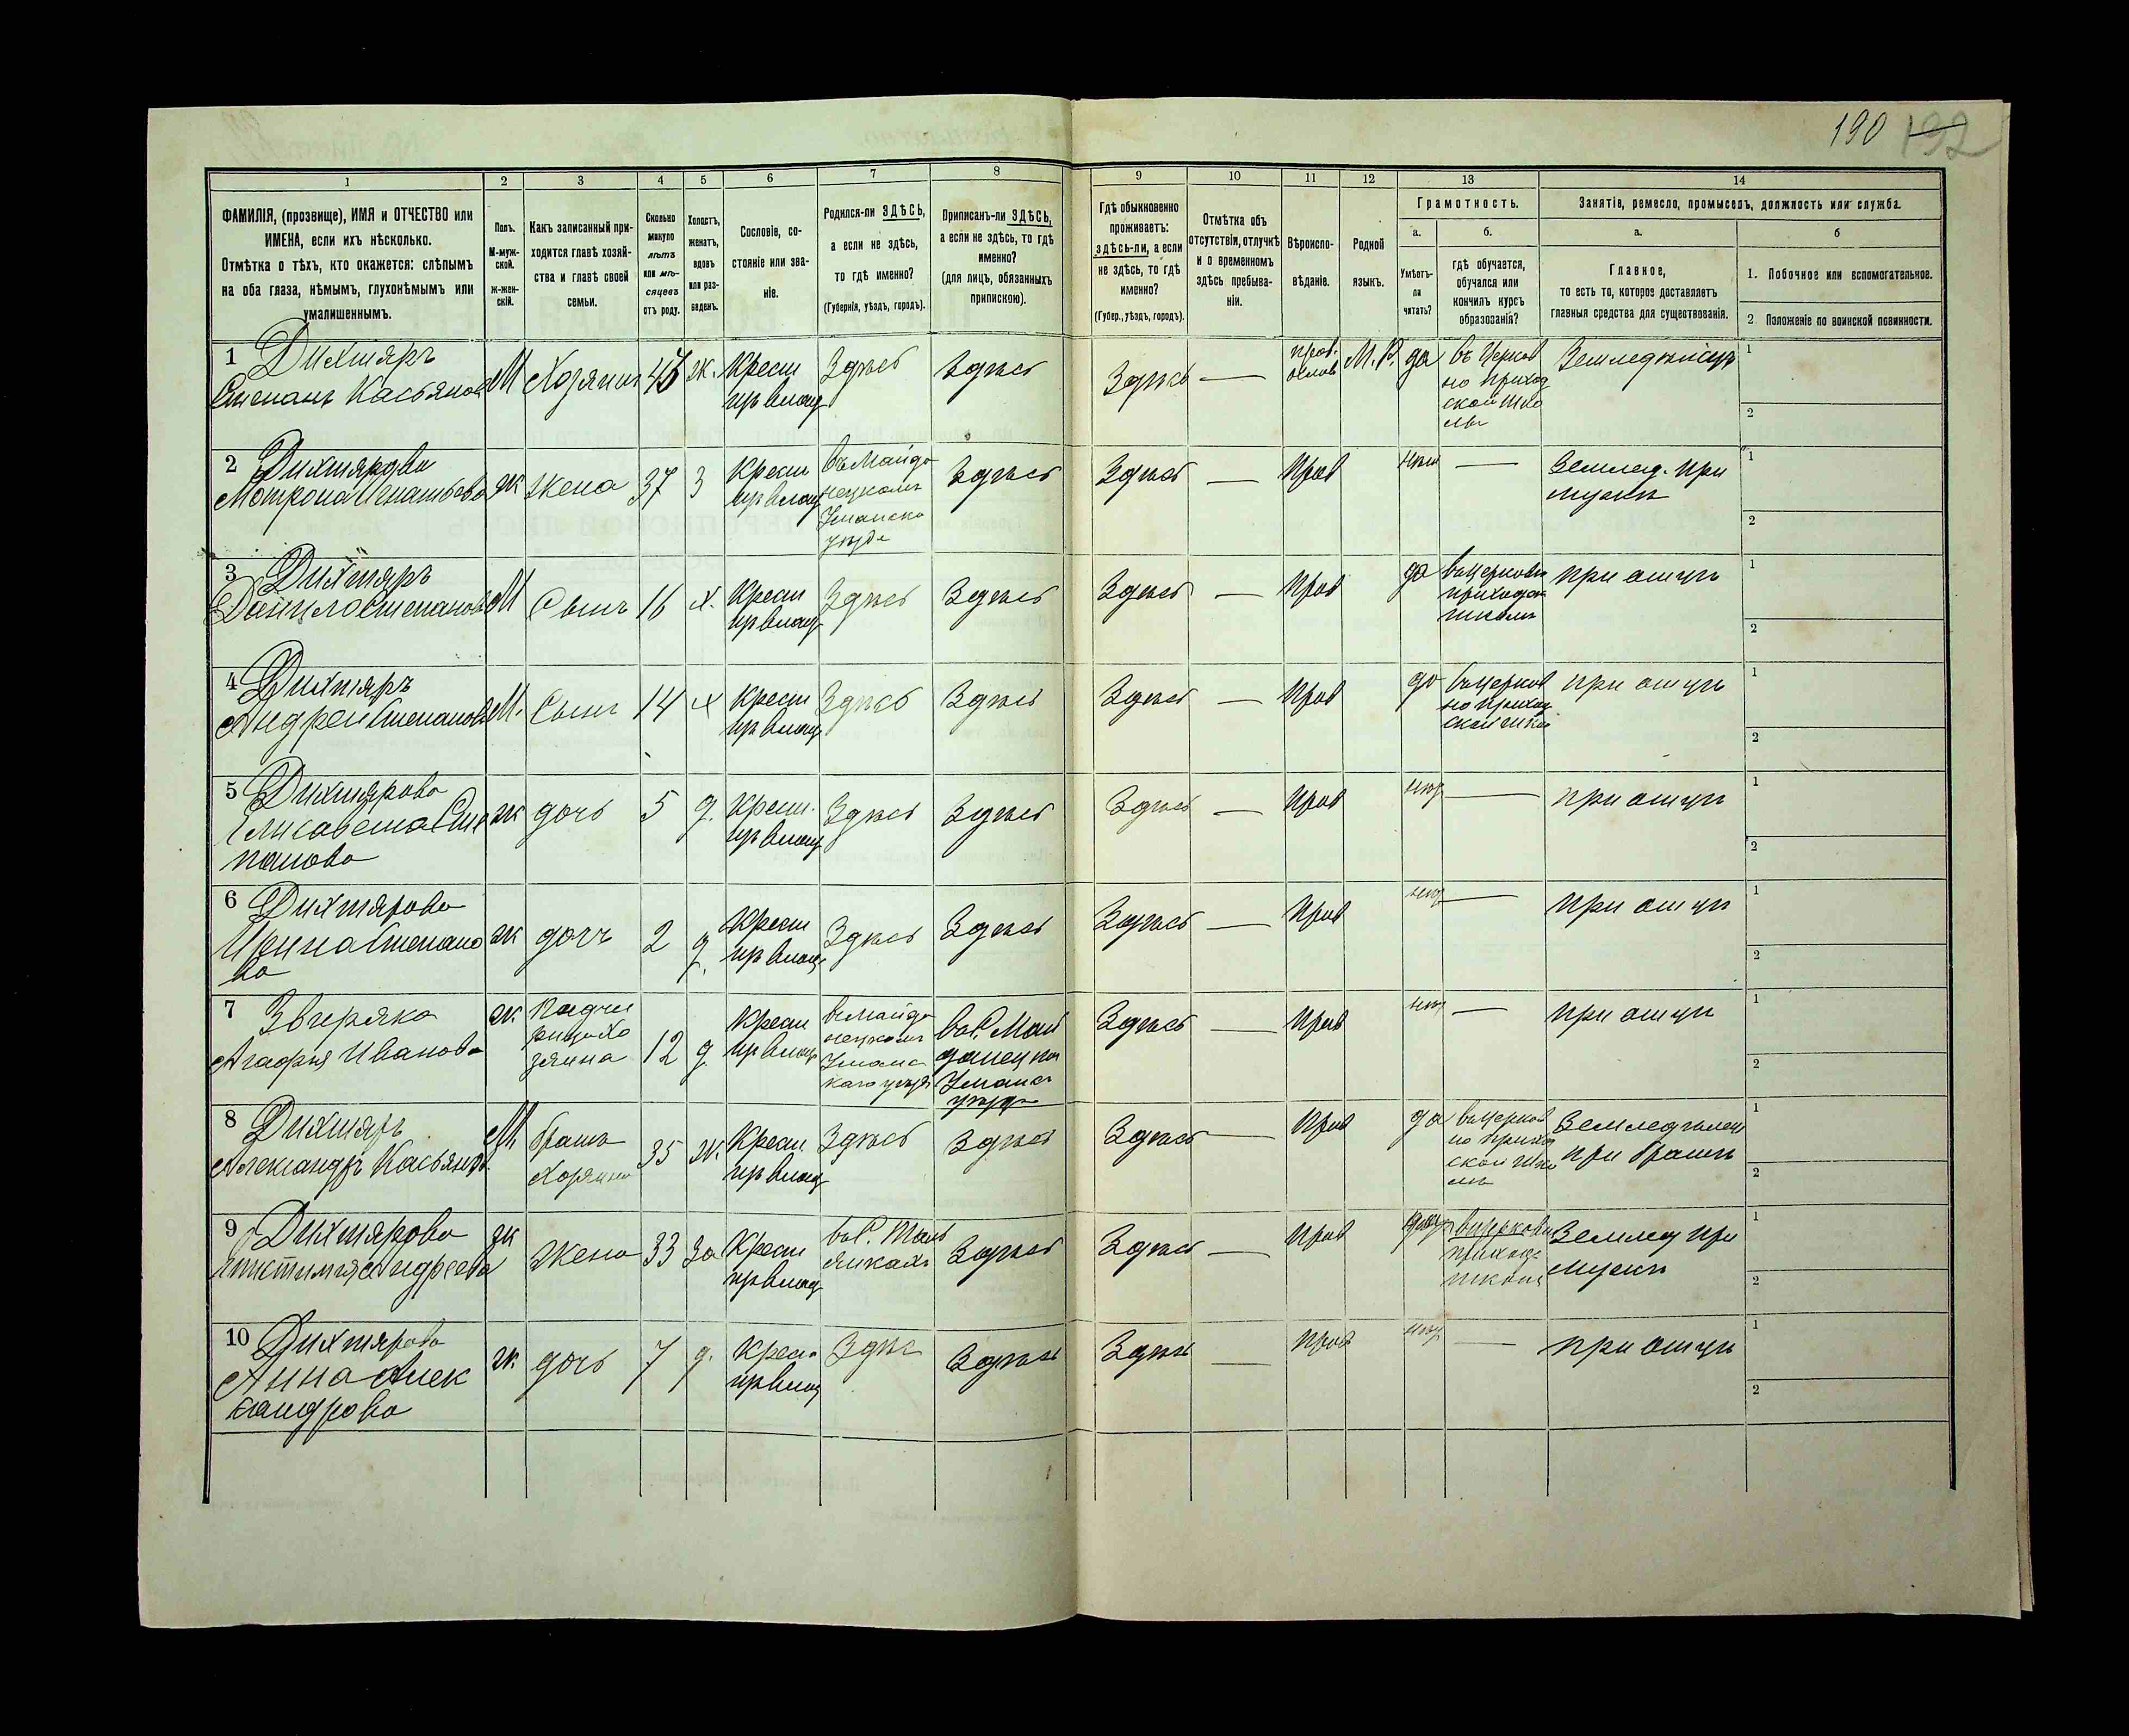 190 192
1 2 3 4 5 6 7 8 9 10 11 12 13 14
ФАМИЛІЯ, (прозвище), ИМЯ и ОТЧЕСТВО или
ИМЕНА, если ихъ нѣсколько.
Отмѣтка о тѣхъ, кто окажется: слѣпымъ
на оба глаза, нѣмымъ, глухонѣмымъ или
умалишеннымъ.
Полъ.
М-муж-
ской.
Ж-жен-
скій.
Какъ записанный при-
ходится главѣ хозяй-
ства и главѣ своей
семьи.
Сколько
минуло
лѣтъ
или мѣ-
сяцевъ
отъ роду.
Холостъ,
женатъ,
вдовъ
или раз-
веденъ.
Сословіе, со-
стояніе или зва-
ніе.
Родился-ли ЗДѢСЬ,
а если не здѣсь,
то гдѣ именно?
(Губернія, уѣздъ, городъ).
Приписанъ-ли ЗДѢСЬ,
а если не здѣсь, то гдѣ
именно?
(для лицъ, обязанныхъ
припискою).
Гдѣ обыкновенно
проживаетъ:
здѣсь-ли, а если
не здѣсь, то гдѣ
именно?
(Губер., уѣздъ, городъ).
Отмѣтка объ
отсутствіи, отлучкѣ
и о временномъ
здѣсь пребыва-
ніи.
Вѣроиспо-
вѣданіе.
Родной
языкъ.
Грамотность.
а.
Умѣетъ-
ли
читать?
б.
гдѣ обучается,
обучался или
кончилъ курсъ
образованія?
Занятіе, ремесло, промыселъ, должность или служба.
а.
Главное,
то есть то, которое доставляетъ
главныя средства для существованія.
б
1. Побочное или вспомогательное.
2 Положеніе по воинской повинности.
1 Дихтяръ
Степанъ Касьяновъ
М Хозяинъ ж. Крестн
из влад
Здѣсь Здѣсь Здѣсь —
прав-
ослав
М.Р. да въ Церков
но приход
ской шко
лѣ
Земледѣлецъ
1
2
2 Дихтярова
Мотрона Игнатьева
ж жена 37 З Крестн
из влад
въ Майда
нецкомъ
Уманско
уѣзда
Здѣсь Здѣсь — прав нѣт —
Землед. при
мужѣ
1
2
3 Дихтяръ
Данило Степановъ
М Сынъ 16 х. Крестн
из влад
Здѣсь Здѣсь Здѣсь — прав да въ церковно
приходск
школѣ
при отцѣ
1
2
4 Дихтяръ
Андрей Степановъ
М. Сынъ 14 х Крестн
из влад
Здѣсь Здѣсь Здѣсь — прав да въ церков
но приход
ской шко
при отцѣ
1
2
5 Дихтярова
Елисавета Сте
панова
ж дочь 5 д. Крестн.
из влад
Здѣсь Здѣсь Здѣсь — прав нѣт —
при отцѣ
1
2
6 Дихтярова
Ирина Степано
ва
ж дочь 2 д. Крестн
из влад
Здѣсь Здѣсь Здѣсь — прав нѣт —
при отцѣ
1
2
7 Звѣряка
Агафия Иванова
ж Падче
рица хо
зяина
12 д Крестн
из влад
в Майда
нецкомъ
Уманс
каго уѣзда
в с. Май
данецка
Уманск
уѣзда
Здѣсь — прав нѣт —
при отцѣ
1
2
8 Дихтяръ
Александръ Касьяновъ
М братъ
Хозяина
35 ж. Крестн.
из влад
Здѣсь Здѣсь Здѣсь — прав да въ церков
но приход
ской шко
лѣ
Земледѣлец
при братѣ
1
2
9 Дихтярова
Андреева
ж жена 33 За Крестн
из влад
в с. Таль
янках
Здѣсь Здѣсь — прав въ церковно
приход
школѣ
Землед при
мужѣ
1
2
10 Дихтярова
Анна Алек
сандрова
ж. дочь 7 д. Крестн
из влад
Здѣс Здѣсь Здѣсь — прав нѣт —
при отцѣ
1
2